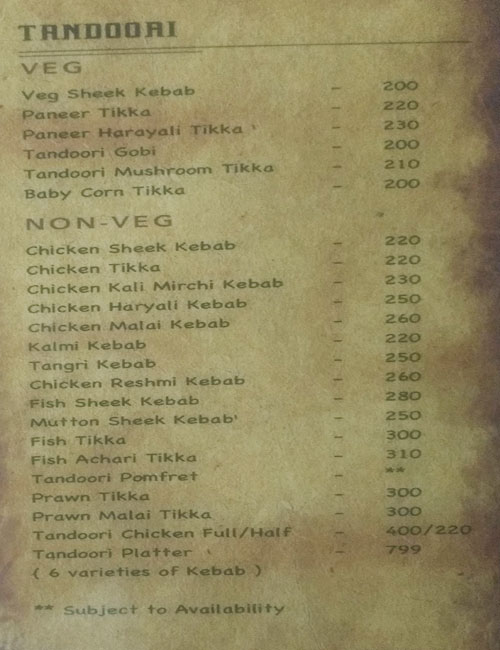 TANDOORI
VEG
Veg Sheek Kebab - 200
Paneer Tikka - 220
Paneer Harayali Tikka - 230
Tandoori Gobi - 200
Tandoori Mushroom Tikka - 210
Baby Corn Tikka - 200
NON-VEG
Chicken Sheek Kebab - 220
Chicken Tikka - 220
Chicken Kali Mirchi Kebab - 230
Chicken Haryali Kebab - 250
Chicken Malai Kebab - 260
Kalmi Kebab - 220
Tangri Kebab - 250
Chicken Reshmi Kebab - 260
Fish Sheek Kebab - 280
Mutton Sheek Kebab - 250
Fish Tikka - 300
Fish Achari Tikka - 310
Tandoori Pomfret - **
Prawn Tikka - 300
Prawn Malai Tikka - 300
Tandoori Chicken Full/Half - 400/220
Tandoori Platter - 799
( 6 varieties of Kebab )
** Subject to Availability